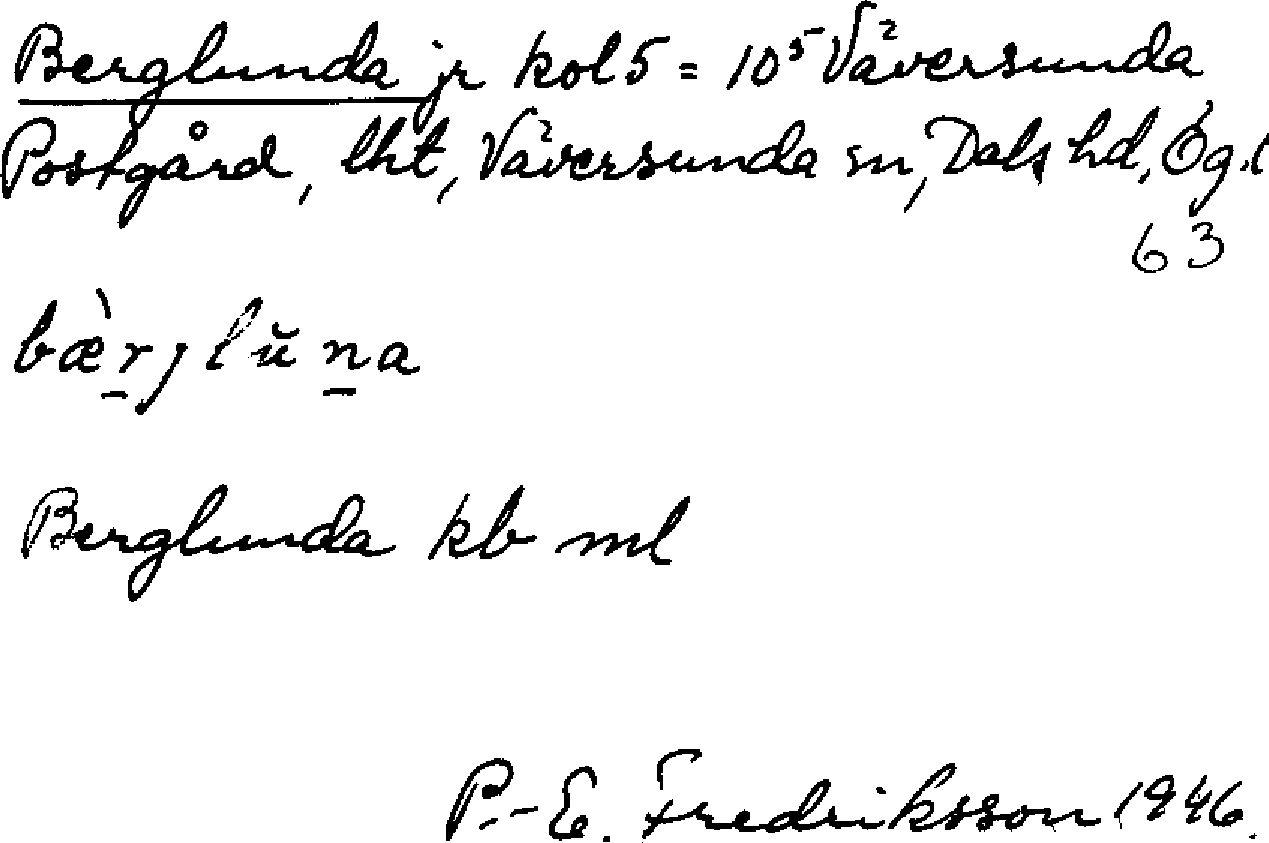 Berglunda jr kol 5 = 10⁵ Väversunda
Postgård, lht, Väversunda sn, Dals hd, Ög.l
63
bæ̀r̠jlŭn̠a
Berglunda kb ml
P.-E. Fredriksson 1946.